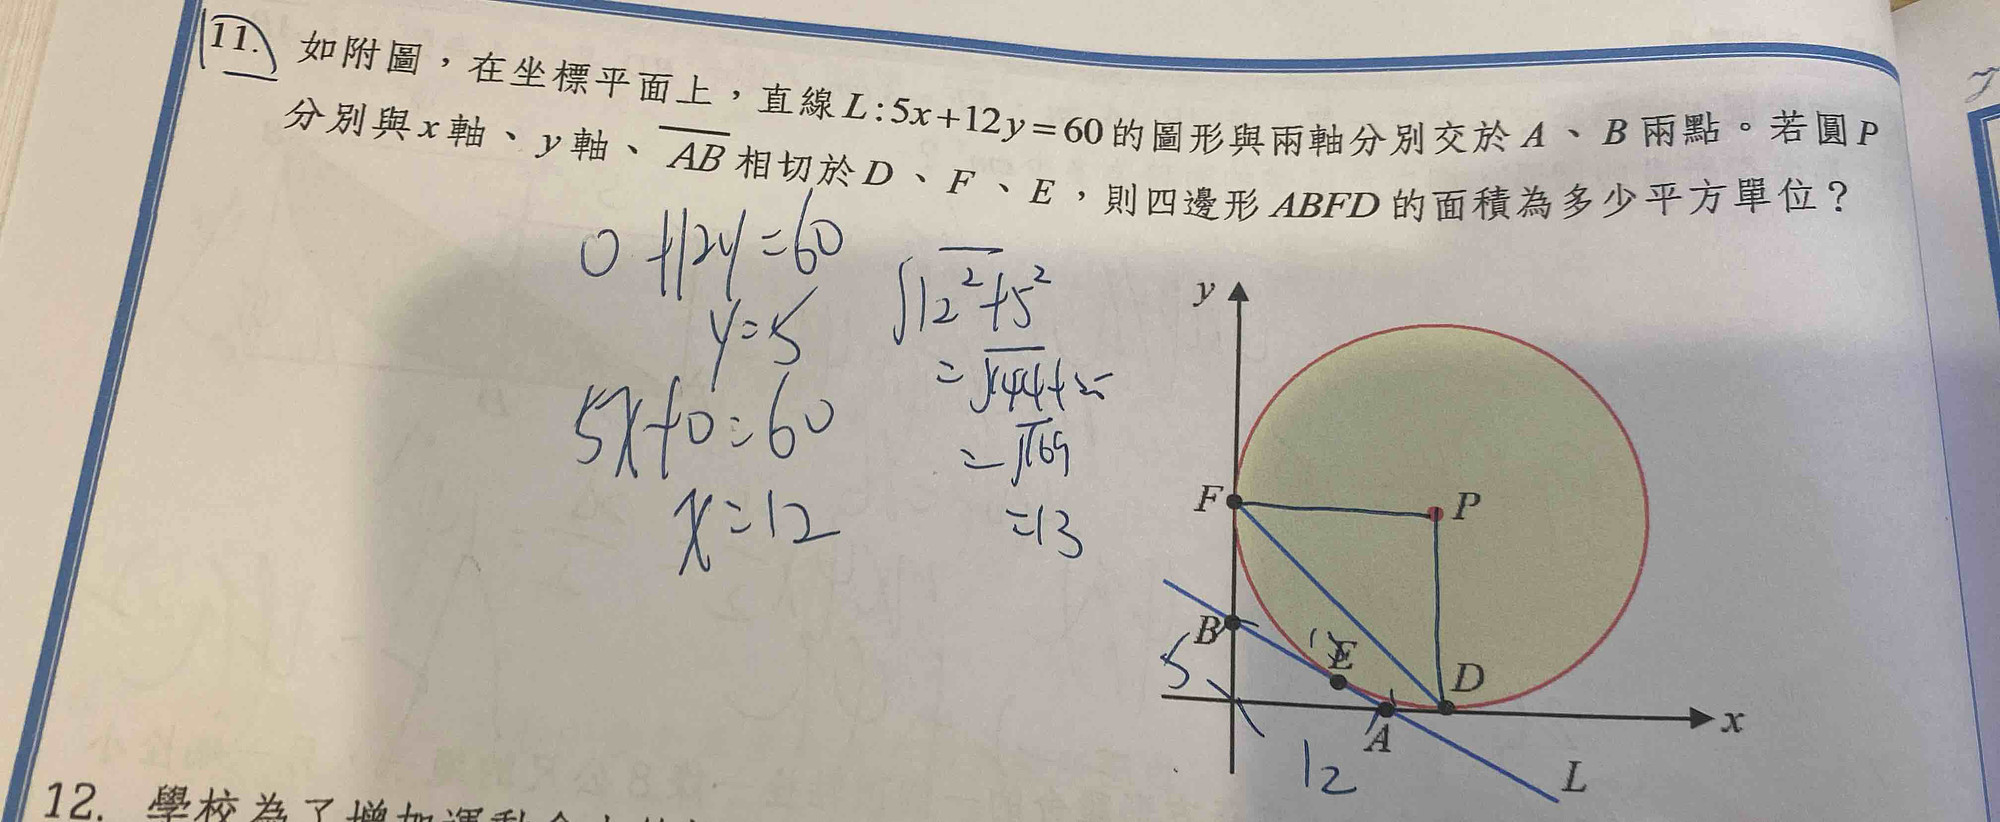 11. 如附圖，在坐標平面上，直線L:5x+12y=60的圖形與兩軸分別交於A、B兩點。若圓P
分別與x軸、y軸、AB相切於D、F、E，則四邊形ABFD的面積為多少平方單位？
0+12y=60
y=5
5x+0=60
x=12
√12²+5²
=√144+25
=√169
=13
y
F
P
B
5
13
E
D
A
x
12
L
12. 學校為了增加運動會